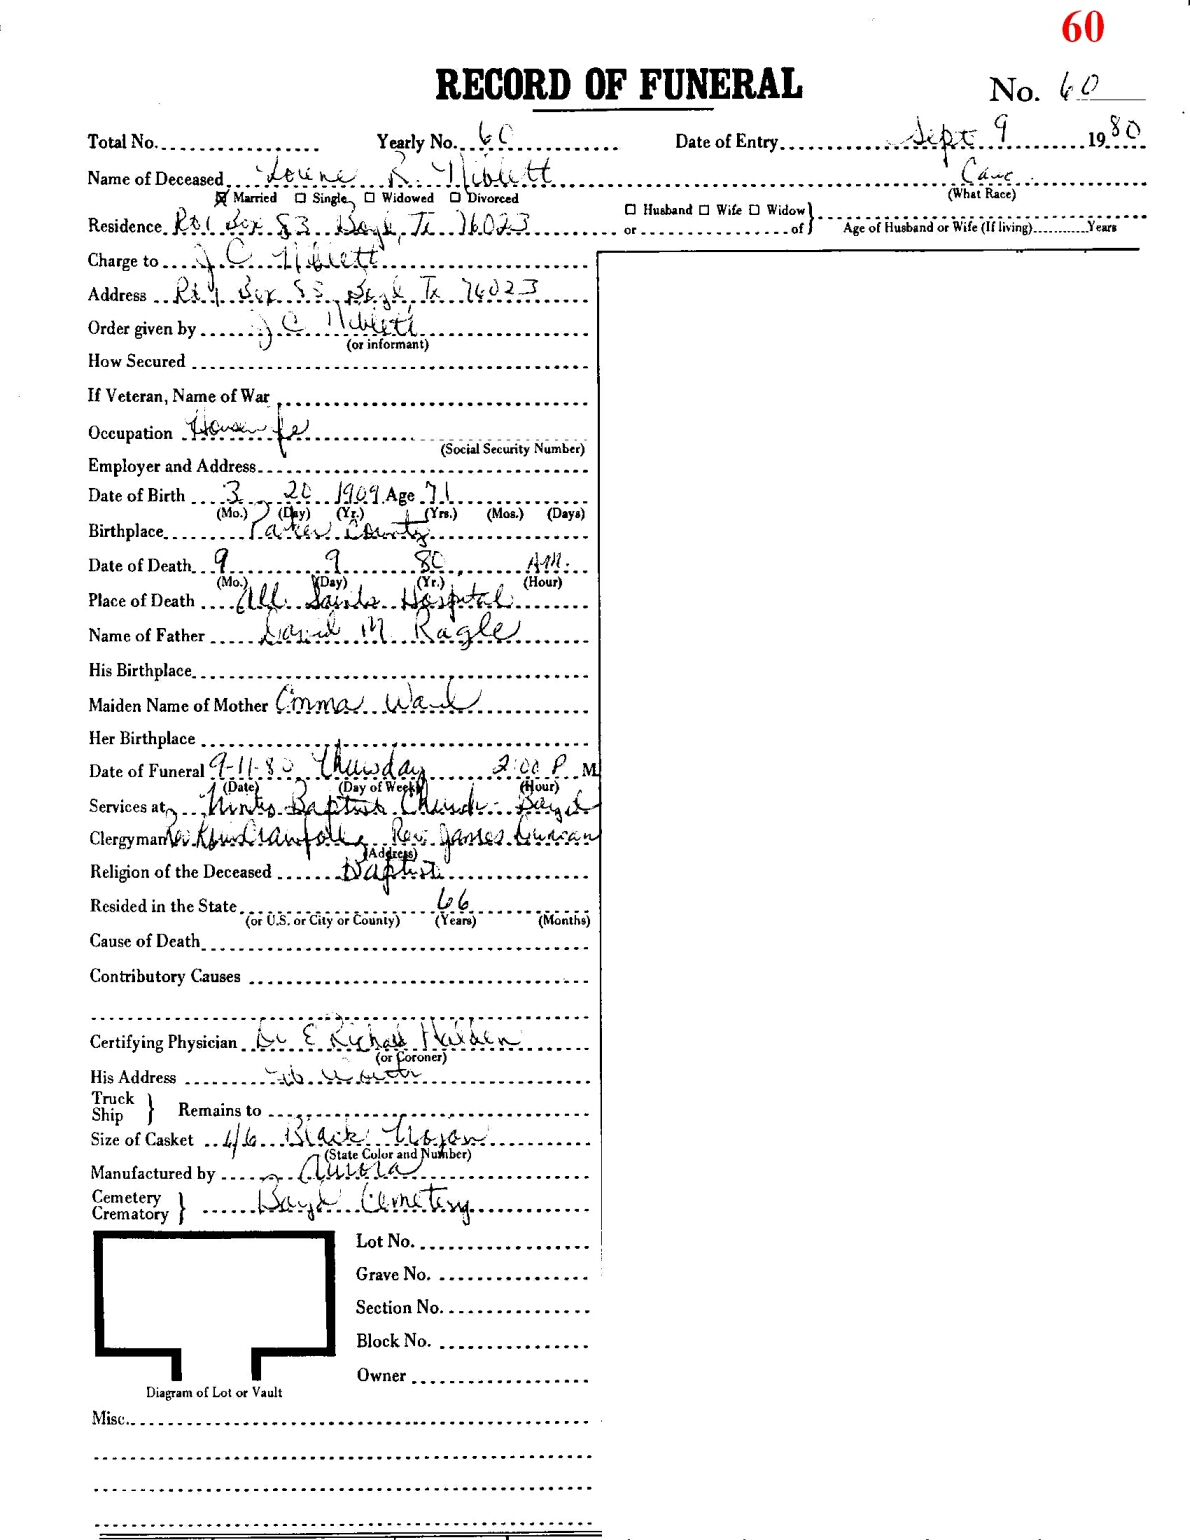 60
RECORD OF FUNERAL
No. 60
Total No. Yearly No. 60 Date of Entry Sept 9 1980
Name of Deceased Lorene R. Niblett Cauc.
Married Single Widowed Divorced (What Race)
Residence Rt 1 Box 83 Boyd, Tx 76023 Husband Wife Widow or of Age of Husband or Wife (If living) Years
Charge to J C Niblett
Address Rt 1 Box 83, Boyd, Tx 76023
Order given by J C Niblett
(or informant)
How Secured
If Veteran, Name of War
Occupation Housewife
(Social Security Number)
Employer and Address
Date of Birth 3 20 1909 Age 71
(Mo.) (Day) (Yr.) (Yrs.) (Mos.) (Days)
Birthplace Parker County
Date of Death 9 9 80 AM.
(Mo.) (Day) (Yr.) (Hour)
Place of Death All Saints Hospital
Name of Father David M Ragle
His Birthplace
Maiden Name of Mother Emma
Her Birthplace
Date of Funeral 9-11-80 Thursday 2:00 P M
(Date) (Day of Week) (Hour)
Services at Baptist Church - Boyd
Clergyman Rev. James Duncan
(Address)
Religion of the Deceased Baptist
Resided in the State 66
(or U.S. or City or County) (Years) (Months)
Cause of Death
Contributory Causes
Certifying Physician Dr E Richard
(or Coroner)
His Address Ft Worth
Truck
Ship } Remains to
Size of Casket 6/6 Black Trojan
(State Color and Number)
Manufactured by Aurora
Cemetery
Crematory } Boyd Cemetery
Lot No.
Grave No.
Section No.
Block No.
Owner
Diagram of Lot or Vault
Misc.